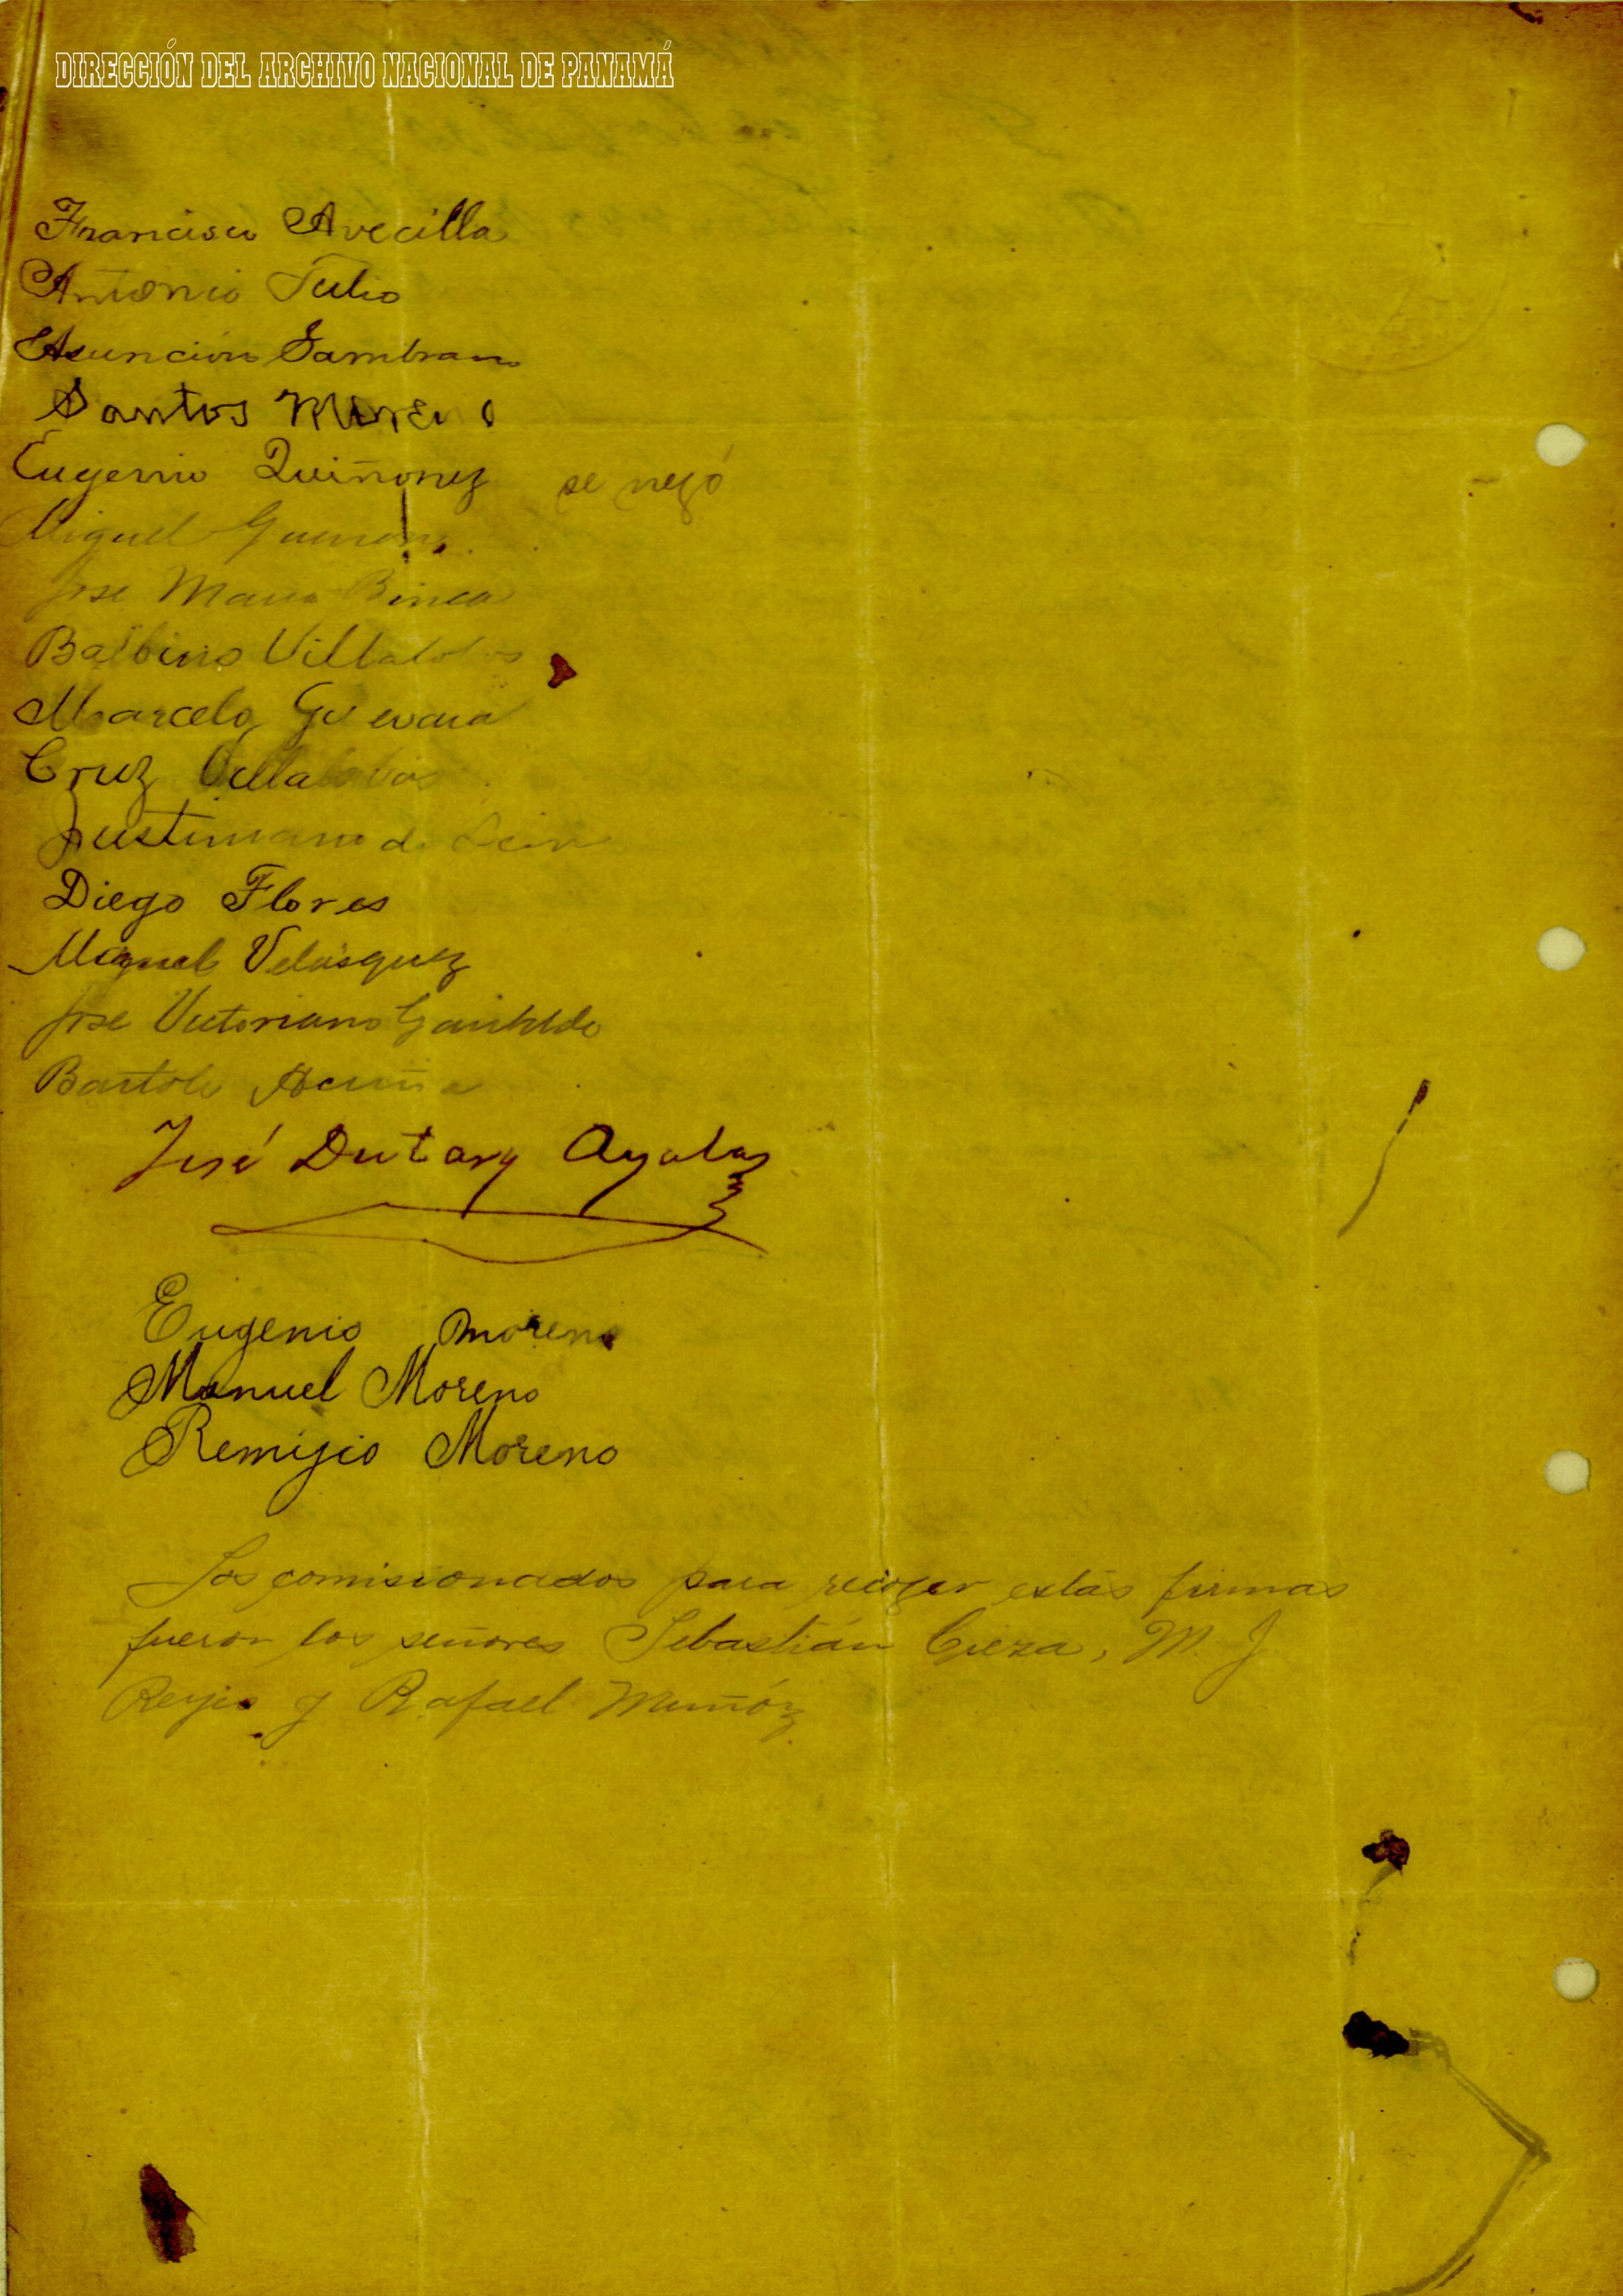 DIRECCIÓN DEL ARCHIVO NACIONAL DE PANAMÁ
Francisco Avecilla
Antonio Tulio
Asunción Sambrano
Santos Moreno
Eugenio Quiñonez se negó
Miguel
Jose Maria
Balbino Villalobos
Marcelo Guevara
Cruz Villalobos
Justiniano de León
Diego Flores
Manuel Velásquez
Jose Victoriano
Bartolo Acuña
José Dutary Ayala
Eugenio Moreno
Manuel Moreno
Remijio Moreno
Los comisionados para recojer estas firmas
fueron los señores Sebastián Cieza, M. J.
y Rafael Muñóz